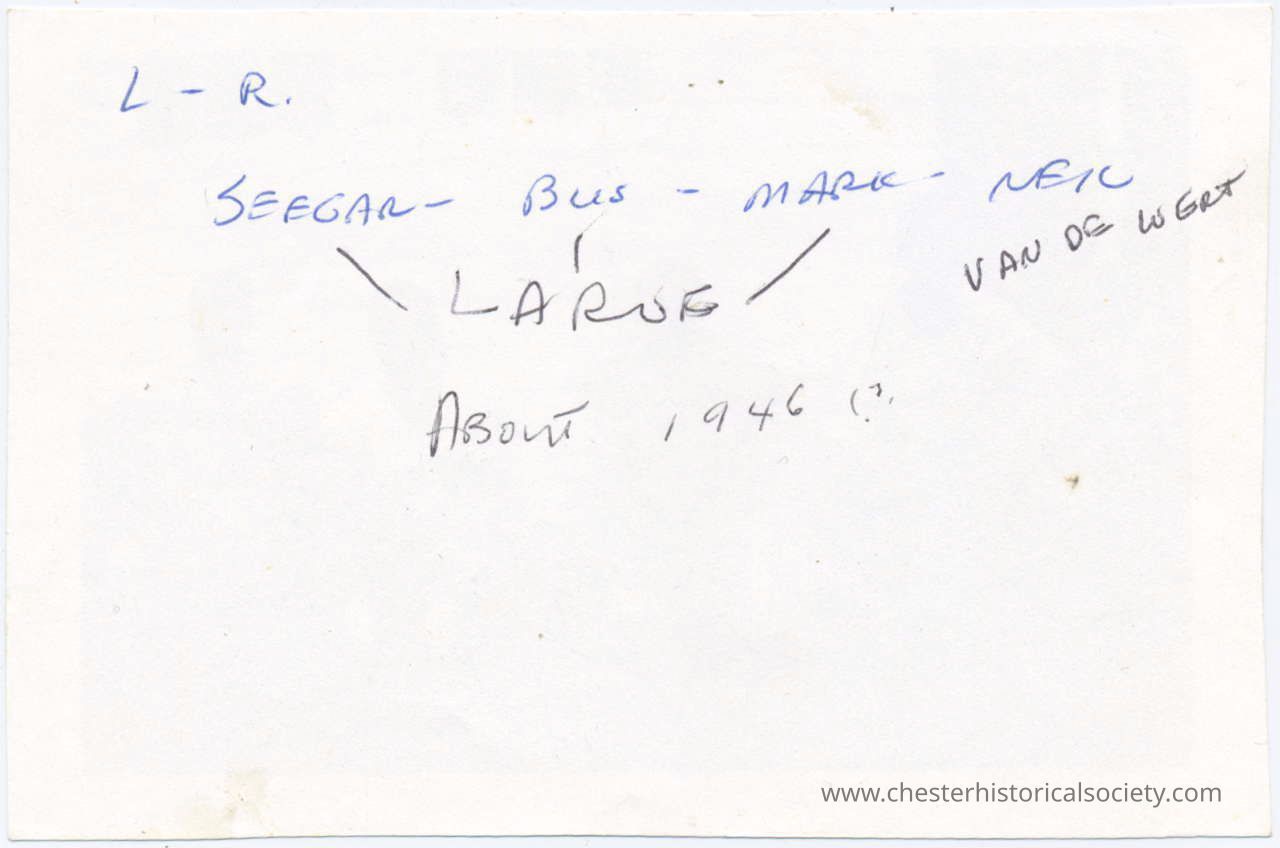 L - R.
SEEGAR - BUS - MARK - NEIL
VAN DE WERT
LARUE
ABOUT 1946 (?)
www.chesterhistoricalsociety.com